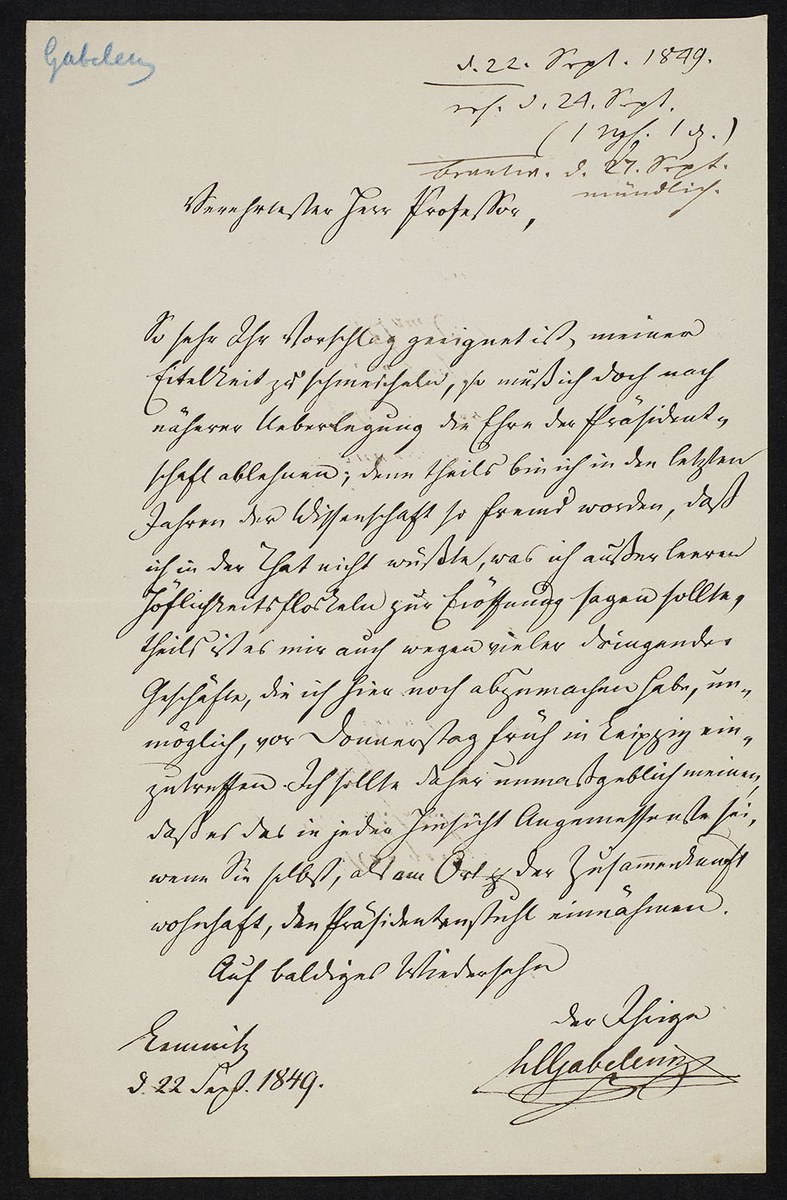 Gabelentz
d. 22. Sept. 1849.
erh. d. 24. Sept.
(1 Ngr. 1 ₰.)
beantw. d. 27. Sept.
mündlich.
Verehrtester Herr Professor,
So sehr Ihr Vorschlag geeignet ist, meiner
Eitelkeit zu schmeicheln, so muß ich doch nach
näherer Ueberlegung die Ehre der Präsident-
schaft ablehnen; denn theils bin ich in den letzten
Jahren der Wissenschaft so fremd worden, daß
ich in der That nicht wüßte, was ich außer leeren
Höflichkeitsfloskeln zur Eröffnung sagen sollte,
theils ist es mir auch wegen vieler dringender
Geschäfte, die ich hier noch abzumachen habe, un-
möglich, vor Donnerstag früh in Leipzig ein-
zutreffen. Ich sollte daher unmaßgeblich meinen,
daß es das in jeder Hinsicht Angemessenste sei,
wenn Sie selbst, als am Ort der Zusammenkunft
wohnhaft, den Präsidentenstuhl einnähmen.
Auf baldiges Wiedersehn
der Ihrige
Lemnitz
HCGabelentz
d. 22 Sept. 1849.